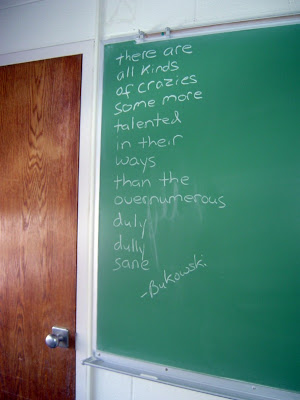 there are
all kinds
of crazies
some more
talented
in their
ways
than the
overnumerous
duly
dully
sane
-Bukowski